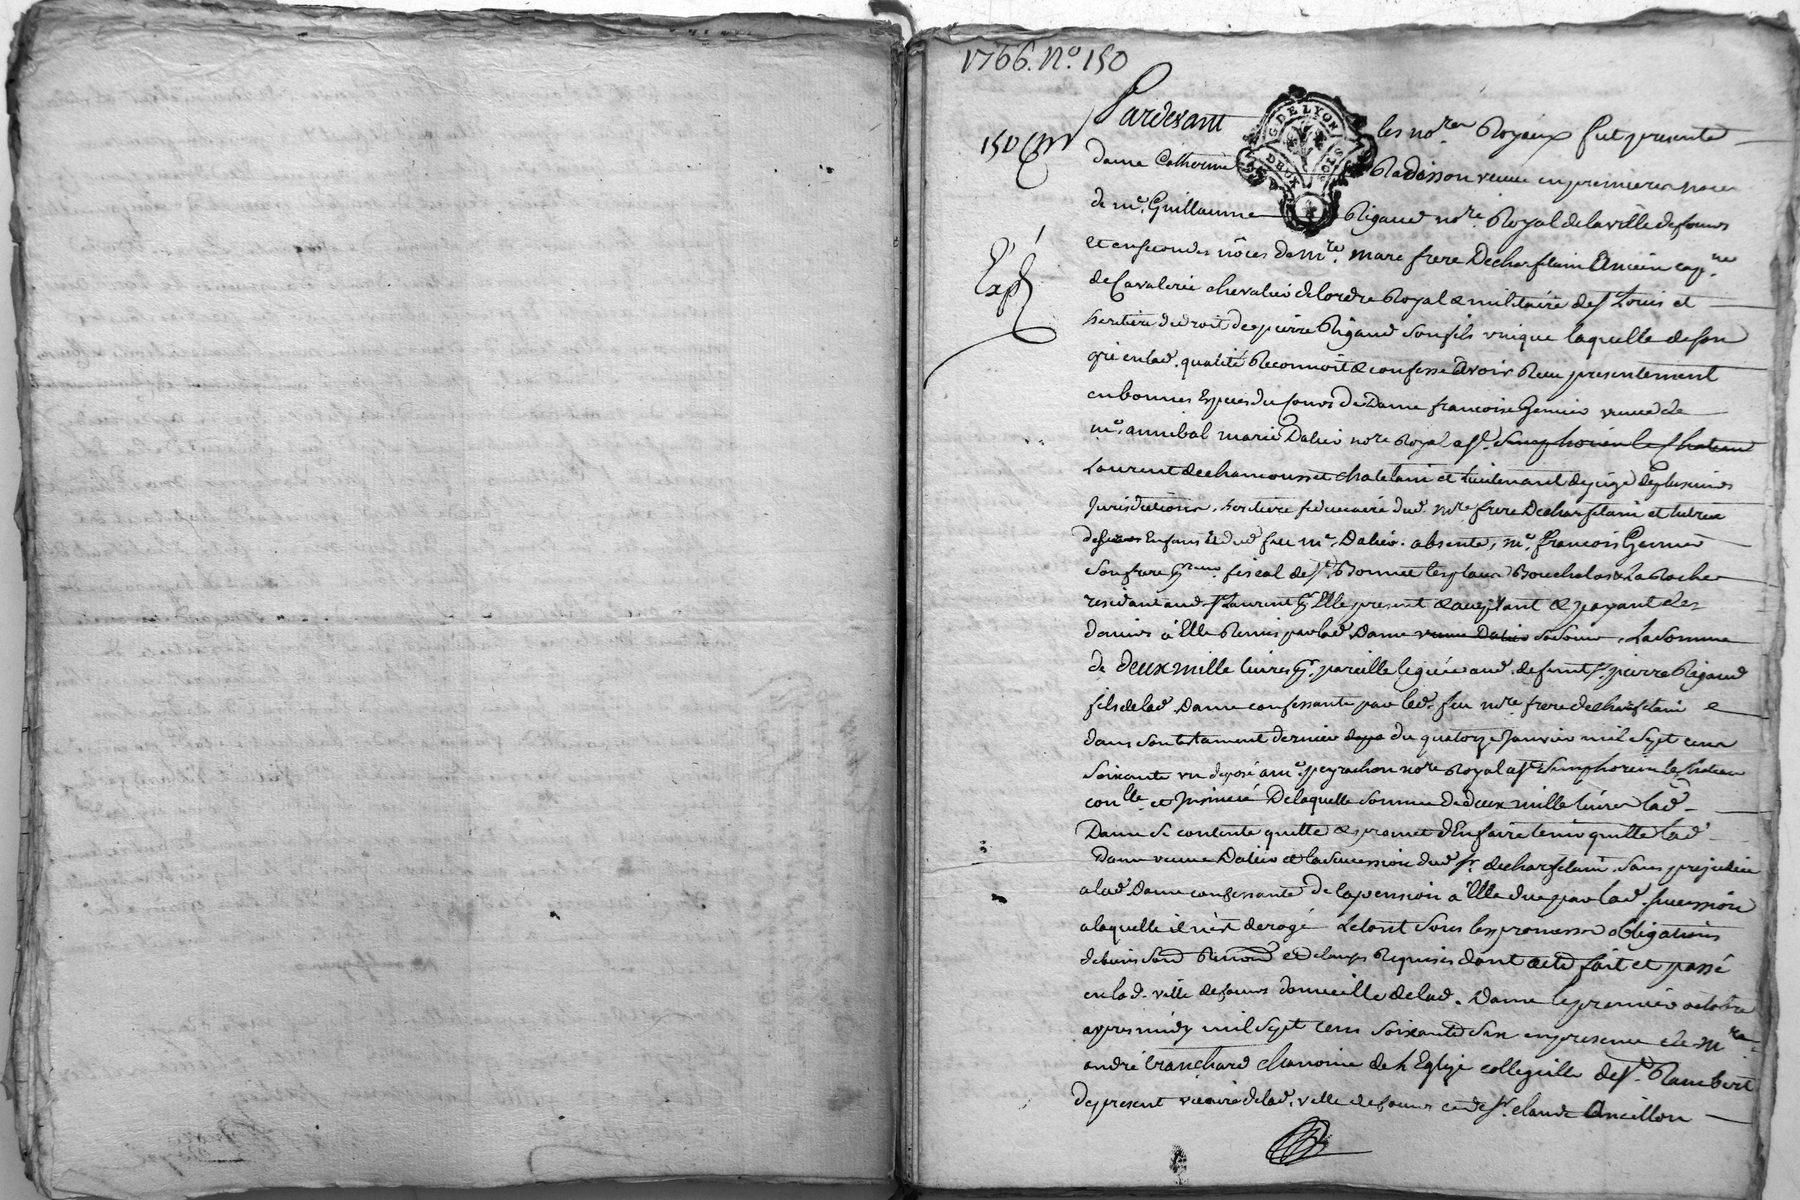 1766. No. 150
G DE LYON
DEUX SOLS
Pardevant les no.res Royaux fut presente
150
dame Catherine Radisson veuve en premieres noces
de me. Guillaume Rigaud nore. Royal de la ville de
et en secondes nôces de mre. marc frere Decharfetain Ancien capne
Exp
de Cavalerie chevalier de lordre Royal & militaire de st Louis et
heritiere de droit de pierre Rigaud son fils unique laquelle de son
gré en lad. qualité Reconnoit & confesse avoir Receu presentement
en bonnes Especes du Cours de Dame francoise Genier veuve de
me. annibal marie Dalier nore Royal a st. Simphorien le Chateau
Laurent de chamousset chatelain et Lieutenant de juge de plusieurs
Jurisdictions, heritiere fiduciaire dud. mre frere Decharfetain et tutrice
de ses Enfans & dud feu me. Dalier. absente, me. francois Genier
son frere fiscal de st. Bonnet les places Bouchalas & La Roche
residant aud. st Laurent pr. Elle present & acceptant & payant des
deniers à Elle Remis par lad Dame veuve Dalier sa soeur, La Somme
de deux mille livres pr. pareille leguée aud. defunt sr. pierre Rigaud
fils de lad Dame confessante par led. feu mre frere decharfetain
dans son testament dernier du quatorze Janvier mil sept cens
soixante un deposé a me. peyrachon nore Royal a st Simphorien le chateau
conllé et Insinué De laquelle somme de deux mille livres lad.
Dame se contente quitte & promet d'En faire tenir quitte lad
Dame veuve Dalier et la succession dud sr. decharfetain, sans prejudice
a lad Dame confessante de la pension à Elle due par lad. succession
a laquelle il n'est derogé Letout sous les promesses obligations
de biens soud Renond et clauses Requises dont acte fait et passé
en lad. ville de domicille de lad. Dame le premier octobre
apres midy mil sept cens soixante six en presence de mre
andré tranchard chanoine de l'Eglise collegialle de st. Rambert
de present vicaire de lad. ville de et de sr. claude Ancillon